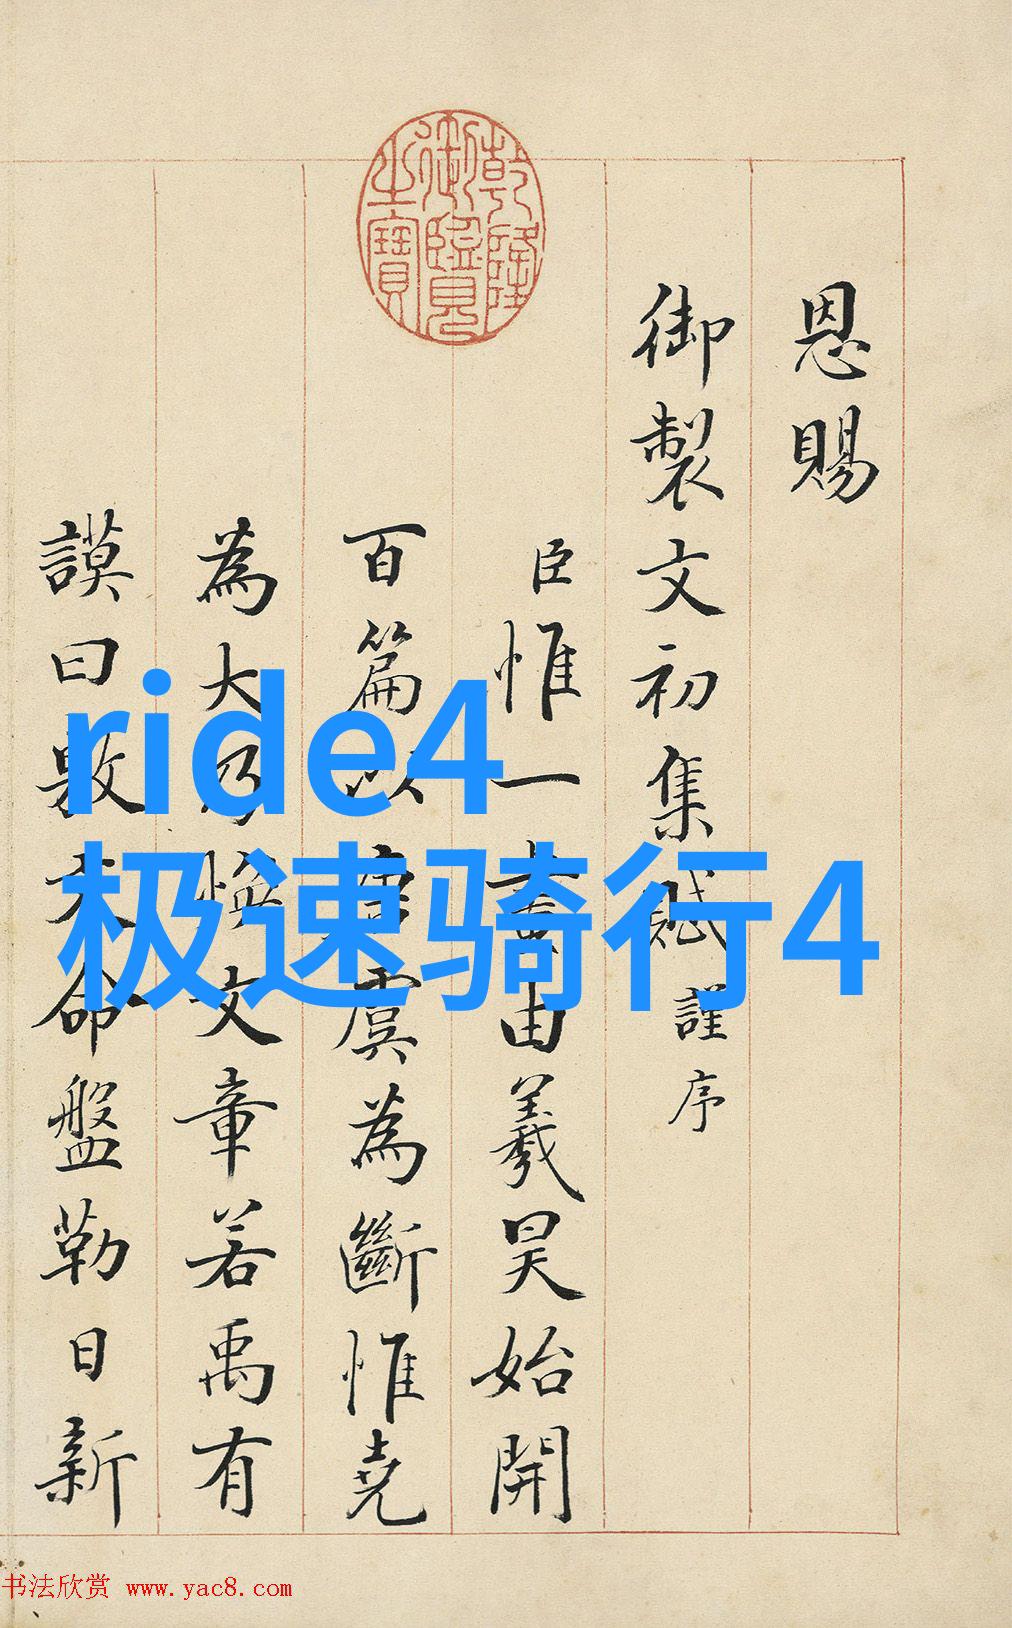 恩賜
御製文初集賦謹序
臣惟一畫由羲昊始開
百篇以唐虞為斷惟堯
為大乃煥文章若禹有
謨曰敷文命盤勒日新
乾隆御覽之寶
ride4
极速骑行4
书法欣赏 www.yac8.com